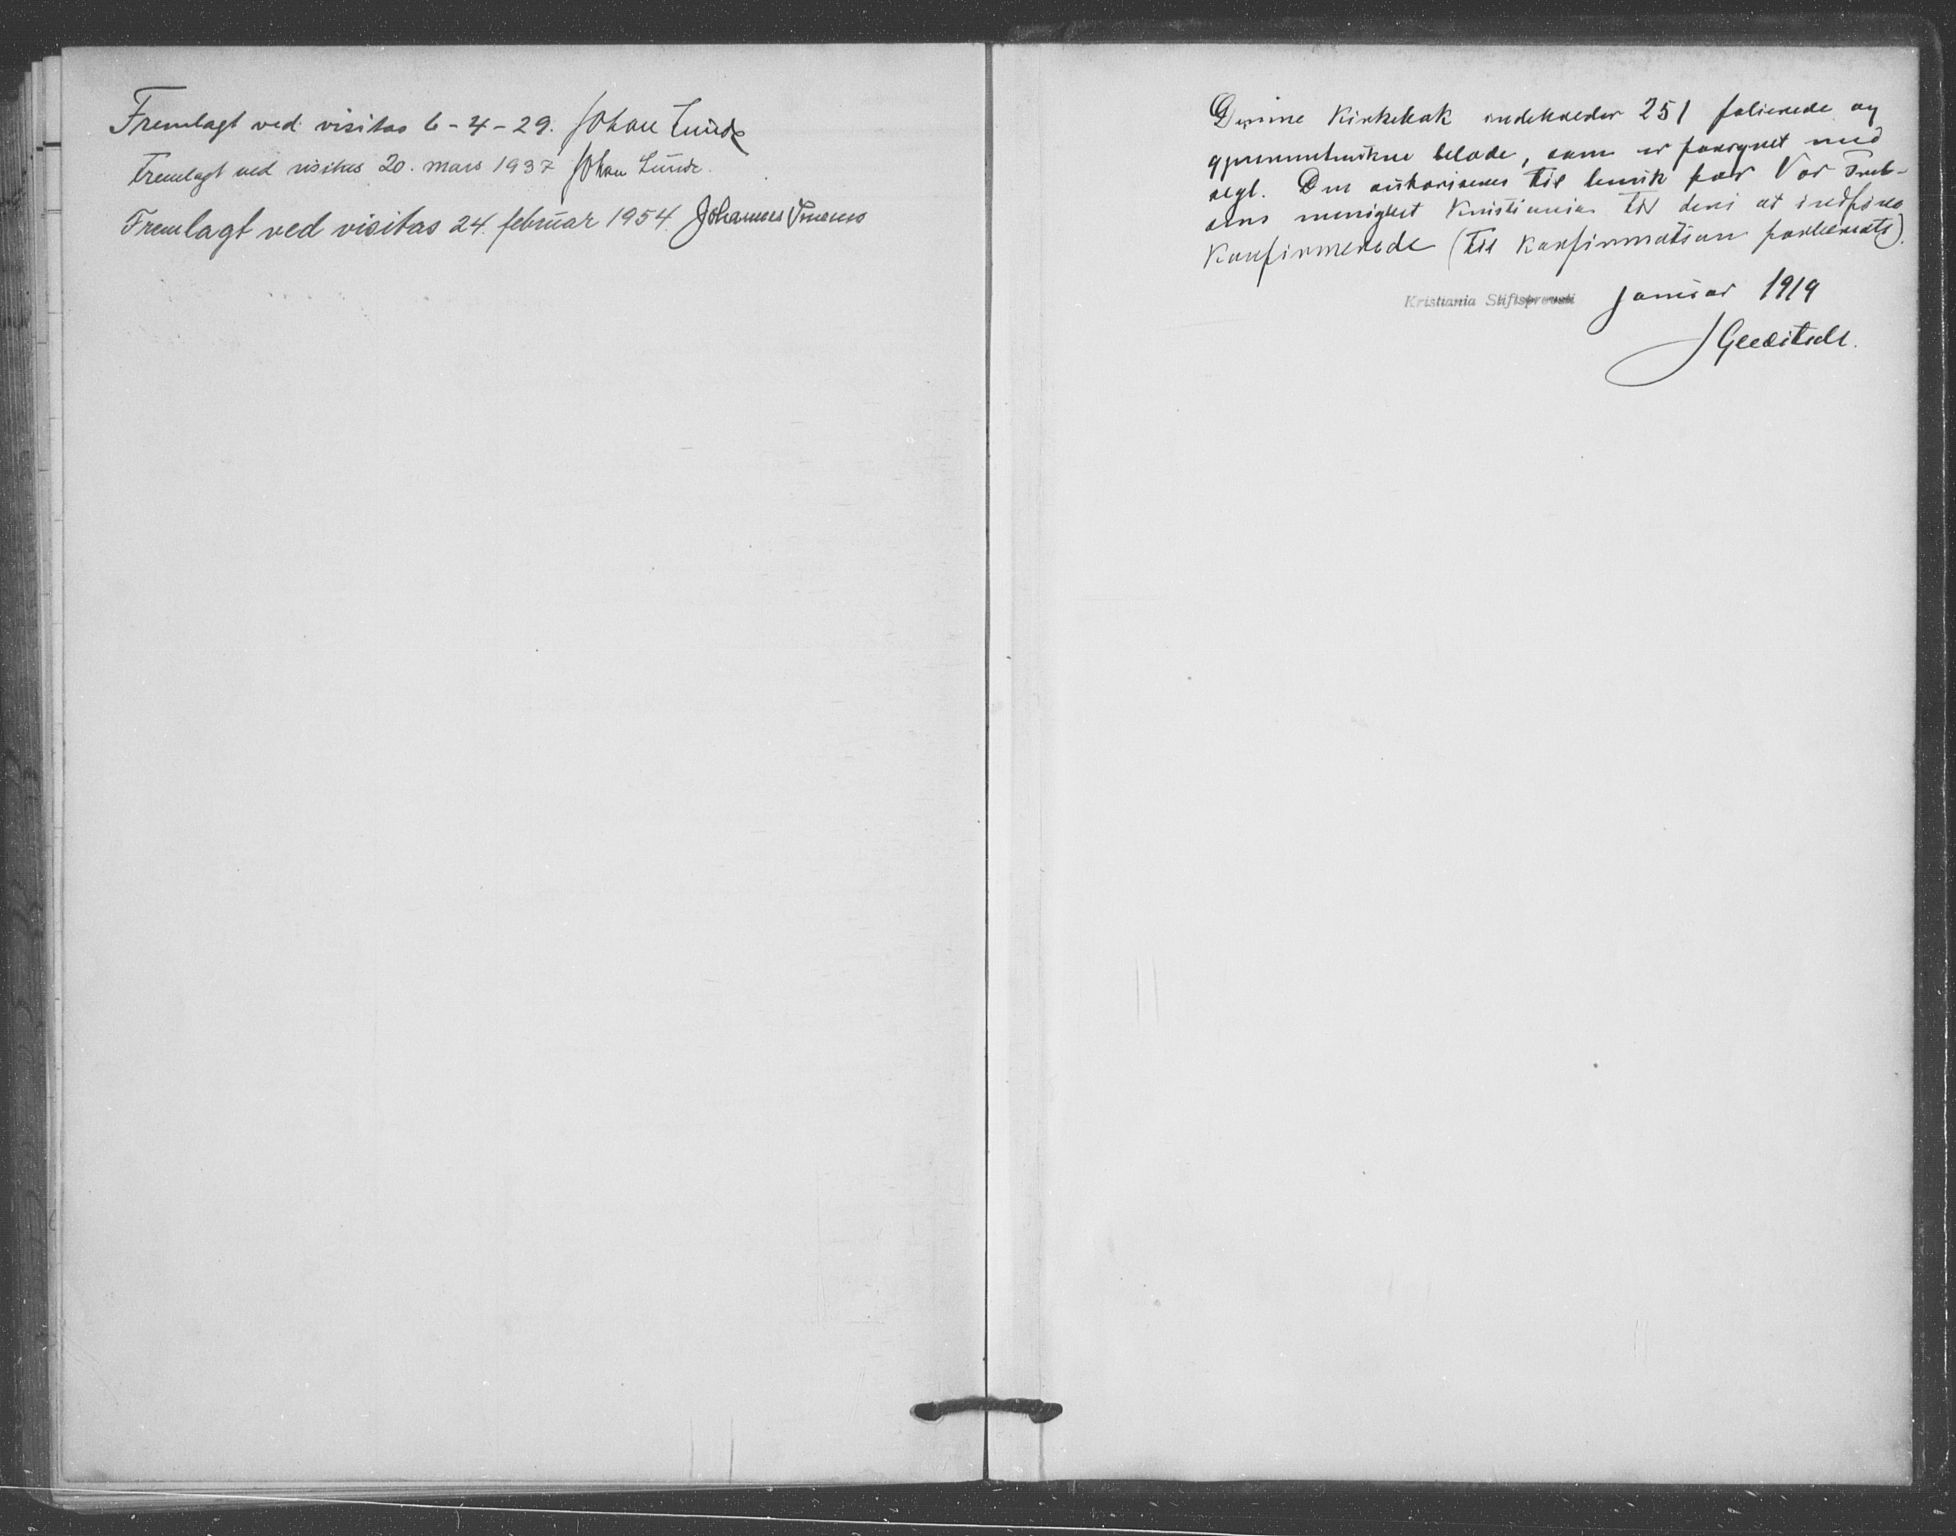 Fremlagt ved visitas 6-4-29. Johan Lunde
Fremlagt ved visitas 20. mars 1937 Johan Lunde.
Fremlagt ved visitas 24. februar 1954. Johannes Smemo
Denne kirkebok indeholder 251 folierede og
gjennemtrukne blade, som er forsynet med
segl. Den autoriseres til bruk for Vor Frels-
ers menighet Kristiania til deri at indføres
Konfirmerede (til Konfirmation forberedte).
Kristiania Stiftsprovsti januar 1919